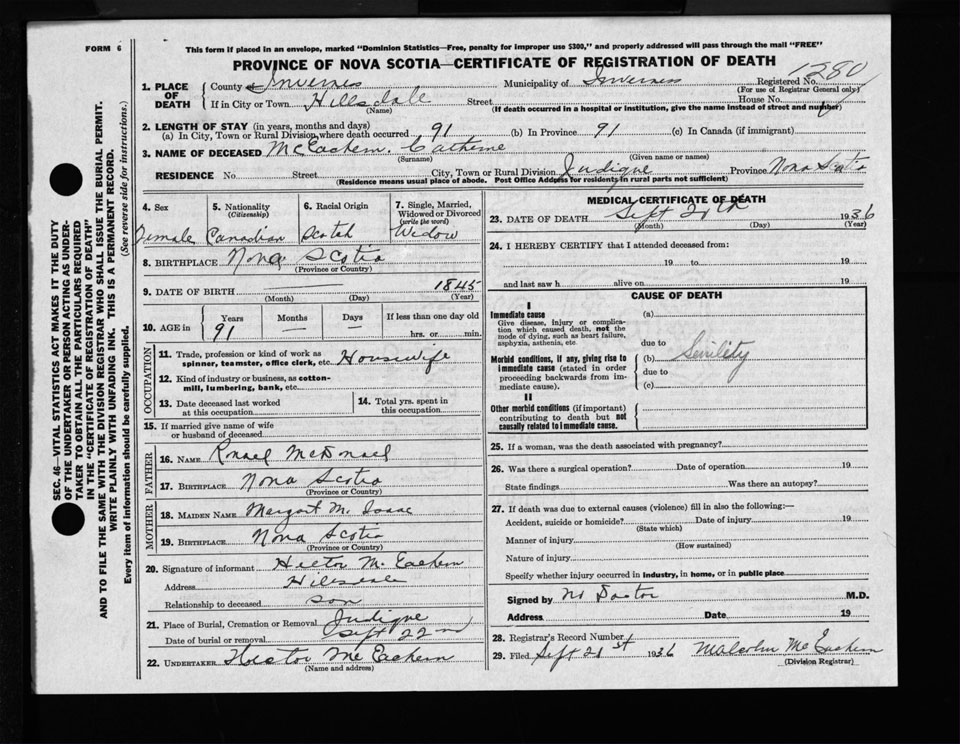 FORM 6
This form if placed in an envelope, marked "Dominion Statistics—Free, penalty for improper use $300," and properly addressed will pass through the mail "FREE"
PROVINCE OF NOVA SCOTIA—CERTIFICATE OF REGISTRATION OF DEATH
1. PLACE OF DEATH
County of Inverness Municipality of Inverness Registered No. 1280
(For use of Registrar General only)
If in City or Town Hillsdale Street House No.
(Name) (If death occurred in a hospital or institution, give the name instead of street and number)
2. LENGTH OF STAY (in years, months and days)
(a) In City, Town or Rural Division where death occurred 91 (b) In Province 91 (c) In Canada (if immigrant)
3. NAME OF DECEASED McEachern Catherine
(Surname) (Given name or names)
RESIDENCE No. Street City, Town or Rural Division Judique Province Nova Scotia
(Residence means usual place of abode. Post Office Address for residents in rural parts not sufficient)
4. Sex 5. Nationality (Citizenship) 6. Racial Origin 7. Single, Married, Widowed or Divorced (write the word)
Female Canadian Scotch Widow
8. BIRTHPLACE Nova Scotia
(Province or Country)
9. DATE OF BIRTH 1845
(Month) (Day) (Year)
10. AGE in Years Months Days If less than one day old
91 — — hrs. or min.
OCCUPATION
11. Trade, profession or kind of work as spinner, teamster, office clerk, etc. Housewife
12. Kind of industry or business, as cotton-mill, lumbering, bank, etc.
13. Date deceased last worked at this occupation
14. Total yrs. spent in this occupation
15. If married give name of wife or husband of deceased
FATHER
16. NAME Ronald McDonald
17. BIRTHPLACE Nova Scotia
(Province or Country)
MOTHER
18. MAIDEN NAME Margaret M. Isaac
19. BIRTHPLACE Nova Scotia
(Province or Country)
20. Signature of informant Hector McEachern
Address Hillsdale
Relationship to deceased son
21. Place of Burial, Cremation or Removal Judique
Date of burial or removal Sept 22nd
22. UNDERTAKER Hector McEachern
(Name and address)
MEDICAL CERTIFICATE OF DEATH
23. DATE OF DEATH Sept 20th 1936
(Month) (Day) (Year)
24. I HEREBY CERTIFY that I attended deceased from:
19 to 19
and last saw h alive on 19
CAUSE OF DEATH
I
Immediate cause (a)
Give disease, injury or complication which caused death, not the mode of dying, such as heart failure, asphyxia, asthenia, etc.
due to
Morbid conditions, if any, giving rise to immediate cause (stated in order proceeding backwards from immediate cause).
(b) Senility
due to
(c)
II
Other morbid conditions (if important) contributing to death but not causally related to immediate cause.
25. If a woman, was the death associated with pregnancy?
26. Was there a surgical operation? Date of operation 19
State findings Was there an autopsy?
27. If death was due to external causes (violence) fill in also the following:—
Accident, suicide or homicide? Date of injury 19
(State which)
Manner of injury
(How sustained)
Nature of injury
Specify whether injury occurred in industry, in home, or in public place
Signed by No Doctor M.D.
Address Date 19
28. Registrar's Record Number
29. Filed Sept 21st 1936 Malcolm McEachern
(Division Registrar)
SEC. 46—VITAL STATISTICS ACT MAKES IT THE DUTY
OF THE UNDERTAKER OR PERSON ACTING AS UNDER-
TAKER TO OBTAIN ALL THE PARTICULARS REQUIRED
IN THE "CERTIFICATE OF REGISTRATION OF DEATH"
AND TO FILE THE SAME WITH THE DIVISION REGISTRAR WHO SHALL ISSUE THE BURIAL PERMIT.
WRITE PLAINLY WITH UNFADING INK. THIS IS A PERMANENT RECORD.
Every item of information should be carefully supplied. (See reverse side for instructions.)